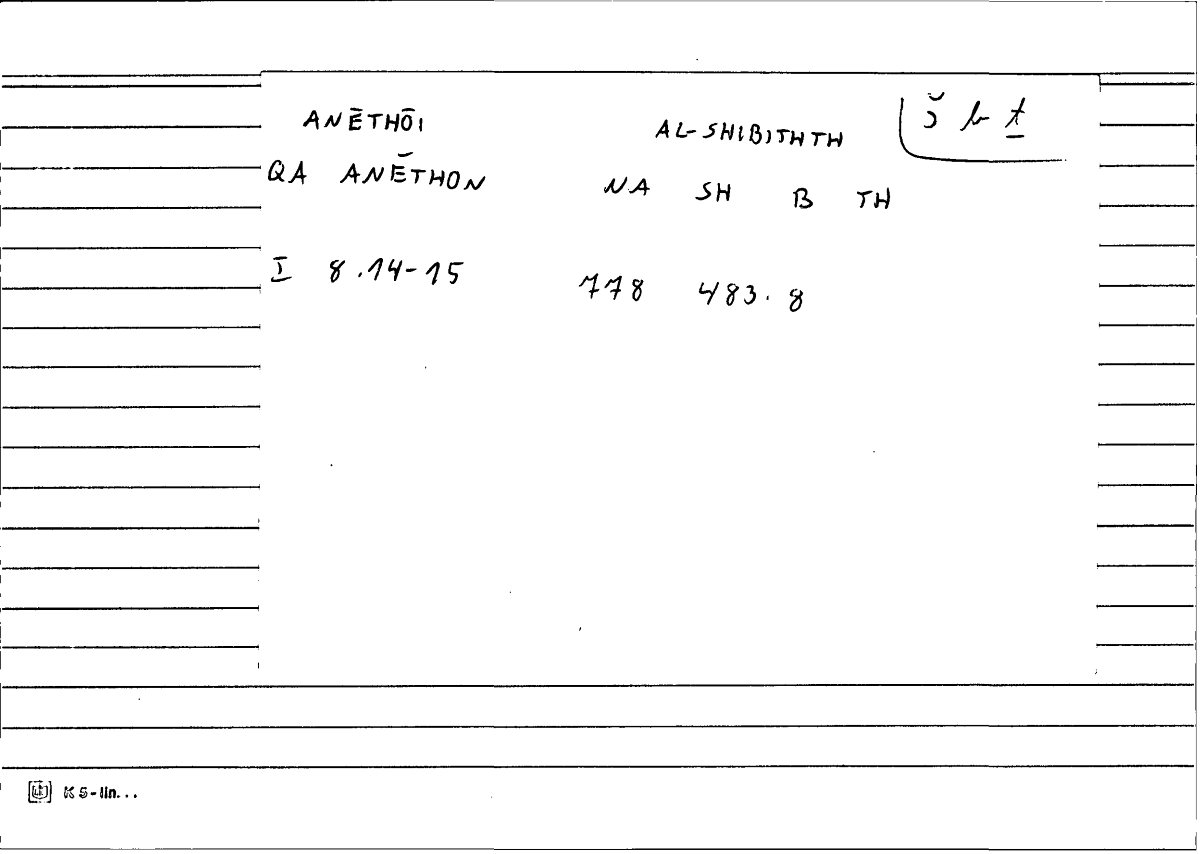 ANĒTHŌI AL-SHIBITHTH š b ṯ
QA ANĒTHON NA SH B TH
I 8.14-15 778 483.8
K5-lin...